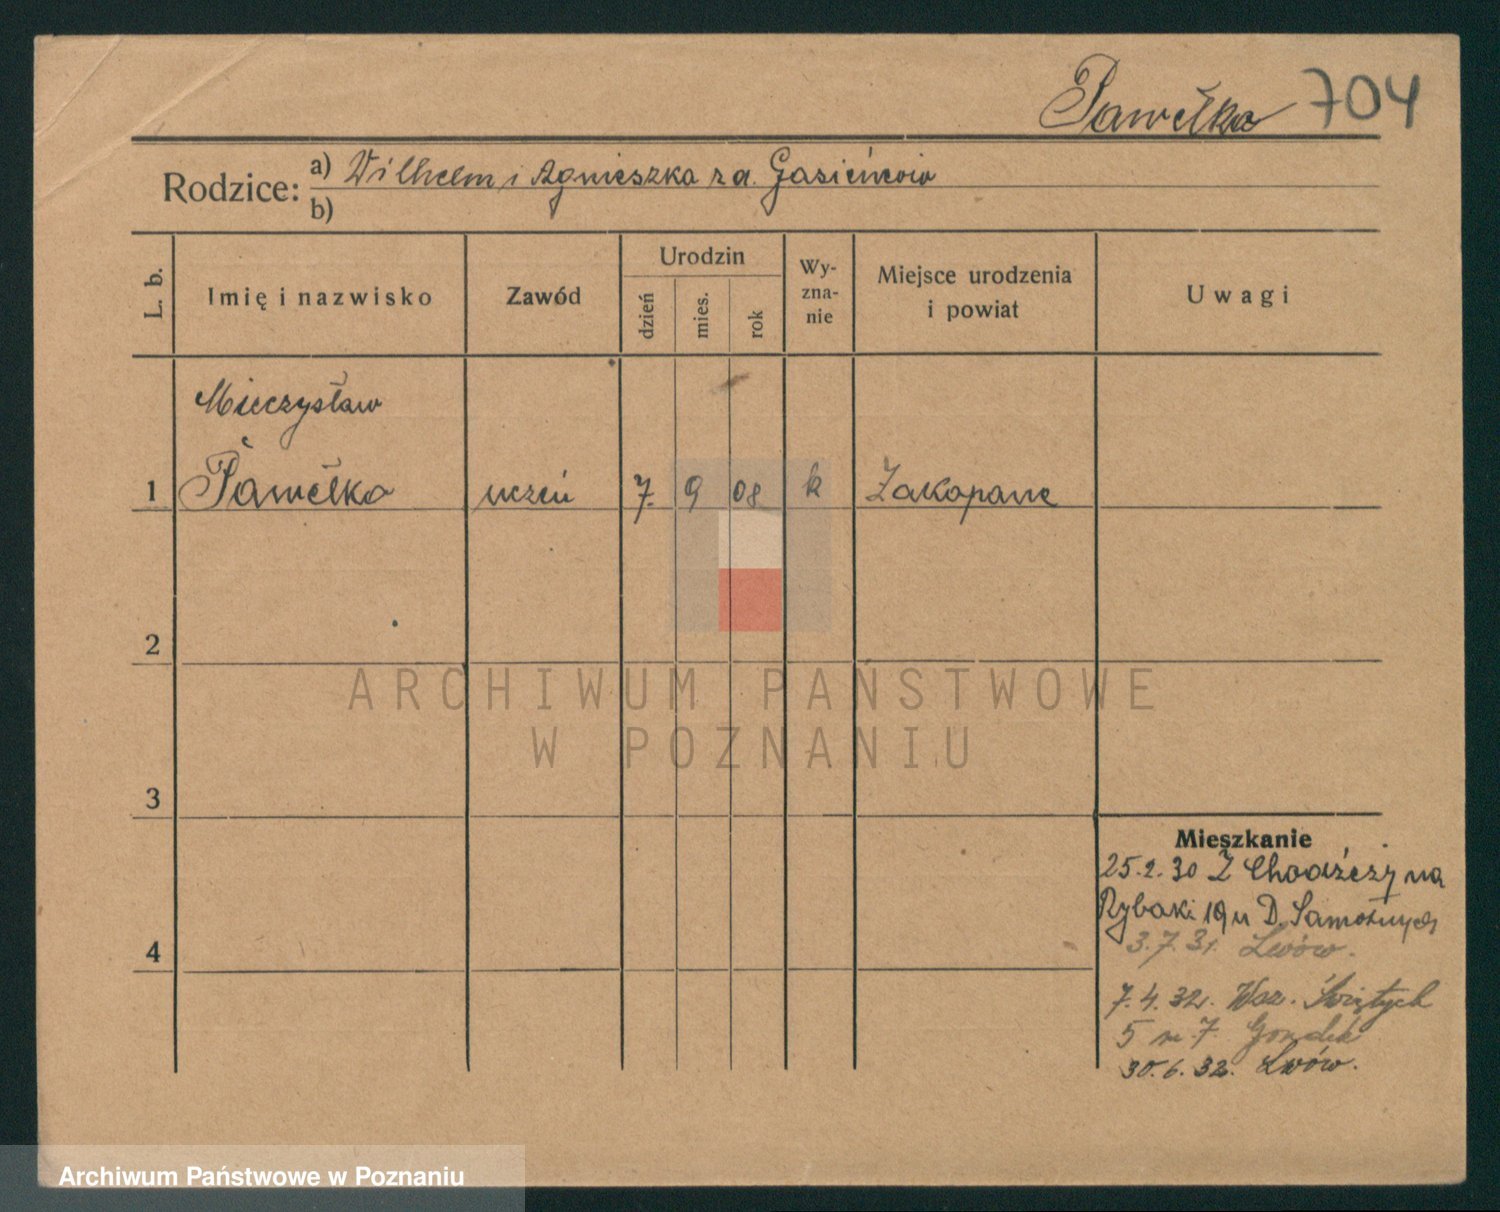 Pawełka 704
Rodzice: a) Wilhelm i Agnieszka z d.
b)
L. b.
Imię i nazwisko
Zawód
Urodzin
dzień
mies.
rok
Wy-
zna-
nie
Miejsce urodzenia
i powiat
Uwagi
Mieczysław
1 Pawełka uczeń 7. 9 08 k Zakopane
2
3
4
Mieszkanie
25.2.30 Z Chodzieży na
Rybaki 19 u D.
3.7.31. Lwów.
7.4.32. Wsz. Świętych
5 m 7
30.6.32. Lwów.
ARCHIWUM PAŃSTWOWE
W POZNANIU
Archiwum Państwowe w Poznaniu